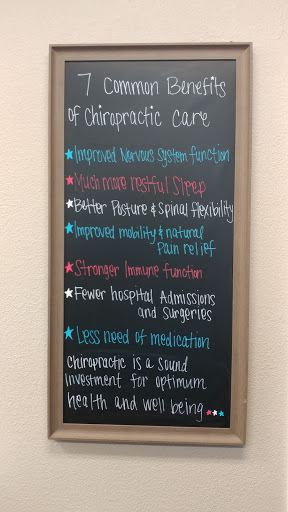 7 Common Benefits
of Chiropractic care
★Improved Nervous System function
★Much more restful Sleep
★Better Posture & Spinal flexibility
★Improved mobility & natural
Pain relief
★Stronger Immune function
★Fewer hospital Admissions
and Surgeries
★Less need of medication
Chiropractic is a sound
investment for optimum
health and well being★★★